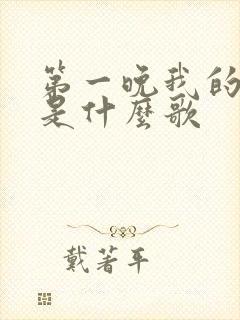 第一晚我的
是什麼歌
戴著平